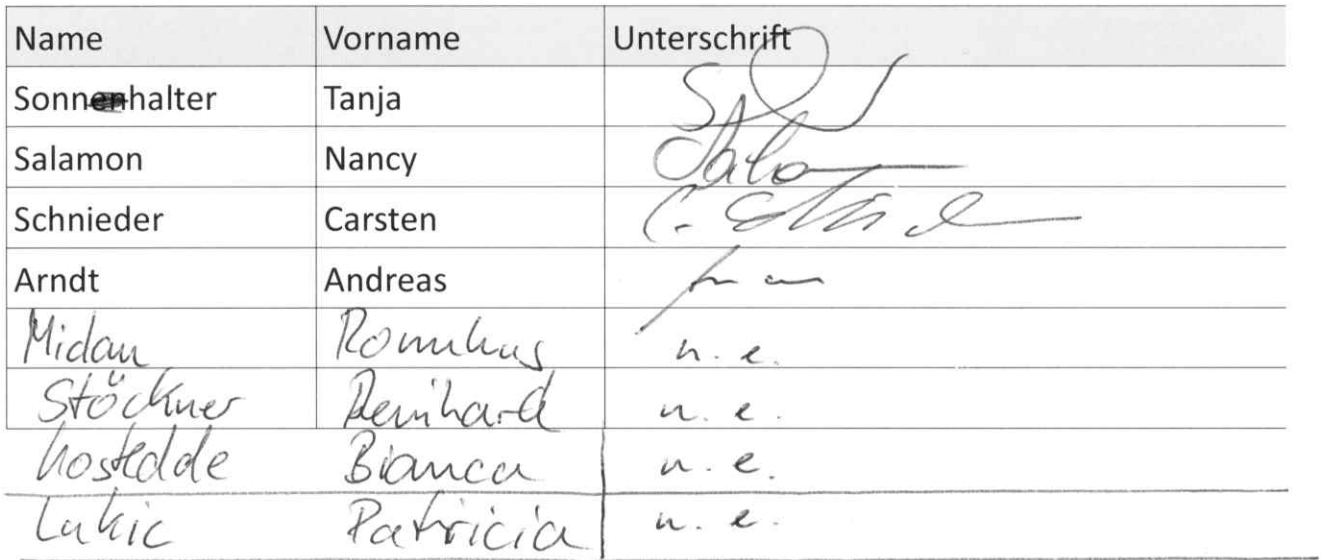 Name Vorname Unterschrift
Sonnenhalter Tanja
Salamon Nancy
Schnieder Carsten
Arndt Andreas
Midan Romulus n. e.
Stöckner Reinhard n. e.
hostedde Bianca n. e.
Lukic Patricia n. e.